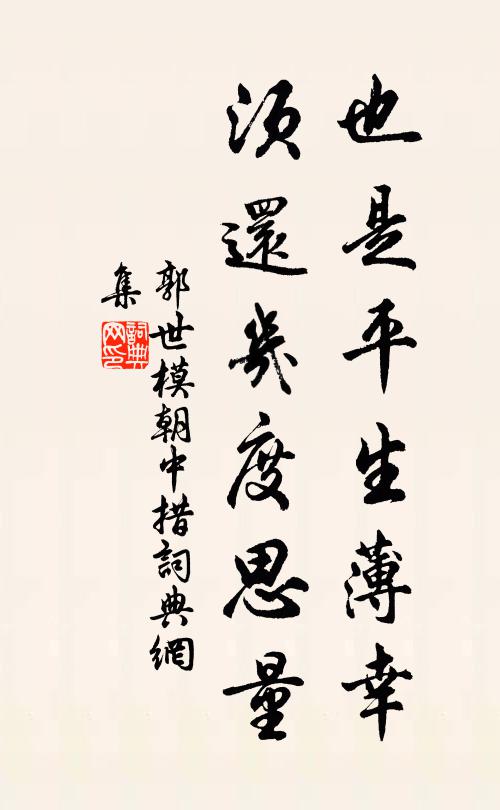 也是平生薄幸
須還幾度思量
郭世模朝中措詞典網
集
詞典
网印